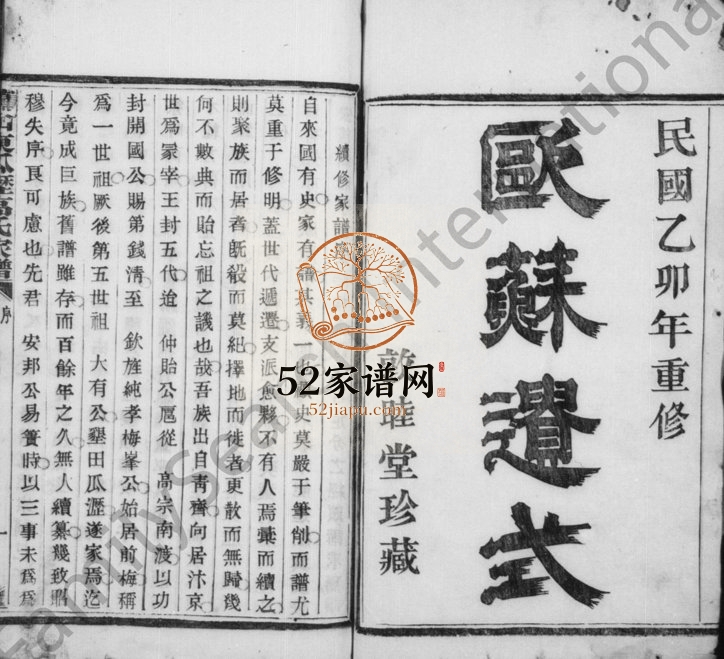 民國乙卯年重修
歐蘇遺式
敦睦堂珍藏
續修家譜
自來國有史家有譜其義一史莫嚴于筆削而譜尤
莫重于修明蓋世代遞遷支派愈夥不有人焉彙而續之
則聚族而居者旣殺而莫紀擇地而徙者更散而無歸幾
何不數典而貽忘祖之譏也哉吾族出自靑齊向居汴京
世爲冡宰王封五代迨 仲貽公扈從 高宗南渡以功
封開國公賜第錢淸至 欽旌純孝梅峯公始居前梅稱
爲一世祖厥後第五世祖 大有公墾田瓜瀝遂家焉迄
今竟成巨族舊譜雖存而百餘年之久無人續纂幾致昭
穆失序良可慮也先君 安邦公易簀時以三事未爲爲
瓜瀝高氏家譜
序
一
52家谱网
52jiapu.com
FamilySearch International